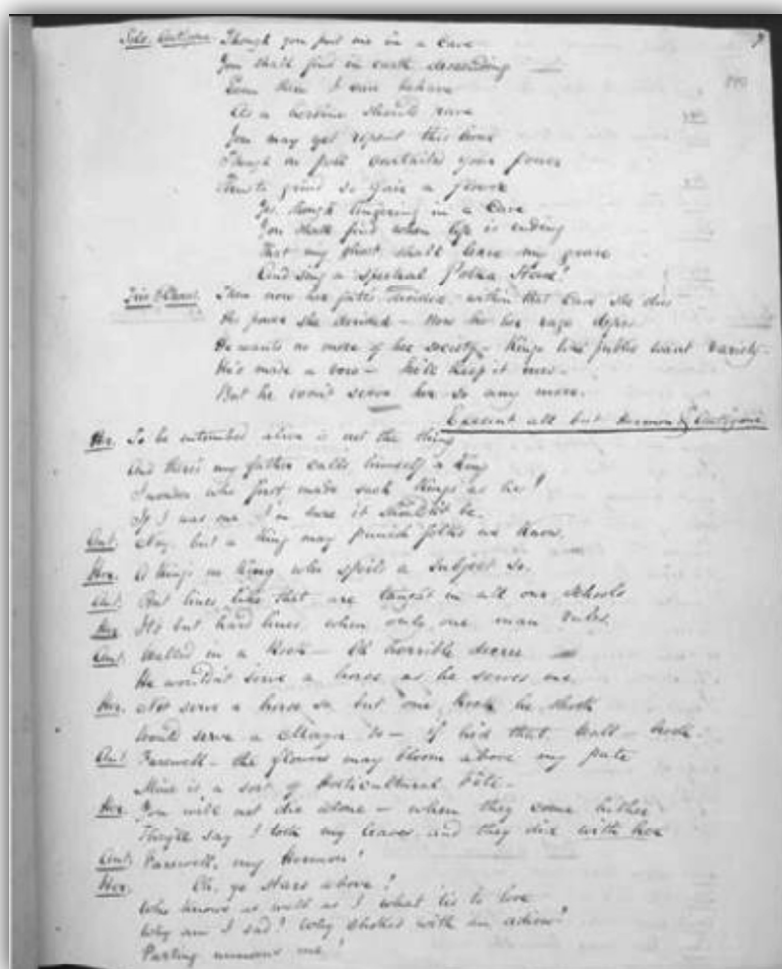 Solo. Antigone. Though you put me in a Cave
You shall find in earth descending
Even there I can behave
As a heroine should rave
You may yet repent this hour
Though on full your power
to grind so fair a flower
Yes though lingering in a Cave
You shall find when life is ending
That my ghost shall leave my grave
And sing a spectral Polka Stave!
Trio & Chorus. Then now her fates decided within that Cave she dies
His power she derided - Now he her rage defies
He wants no more of her society - Kings like public want variety
He's made a vow - he'll keep it
But he won't serve her so any more.
Exeunt all but Hœmon & Antigone
Hœ. To be entombed alive is not the thing
And there's my father calls himself a King
I wonder who first made such things as he!
If I was one I'm sure it shouldn't be.
Ant. Nay, but a King may punish folks we know.
Hœ. A King no King who spoils a subject so.
Ant. But lines like that are taught in all our schools
Hœ. It's but hard lines when only one man rules.
Ant. Walled in a Rock - Oh horrible decree
He wouldn't serve a horse as he serves me.
Hœ. Not serve a horse so but one he
Would serve a so - if he'd that
Ant. Farewell - the flowers may bloom above my pate
Mine is a sort of Horticultural Fête.
Hœ. You will not die alone - when they come hither
They'll say I took my leaves and they died with her
Ant. Farewell, my Hœmon!
Hœ. Oh, ye stars above!
Who knows as well as I what 'tis to love
Why am I sad? Why choked with an
Parting me!